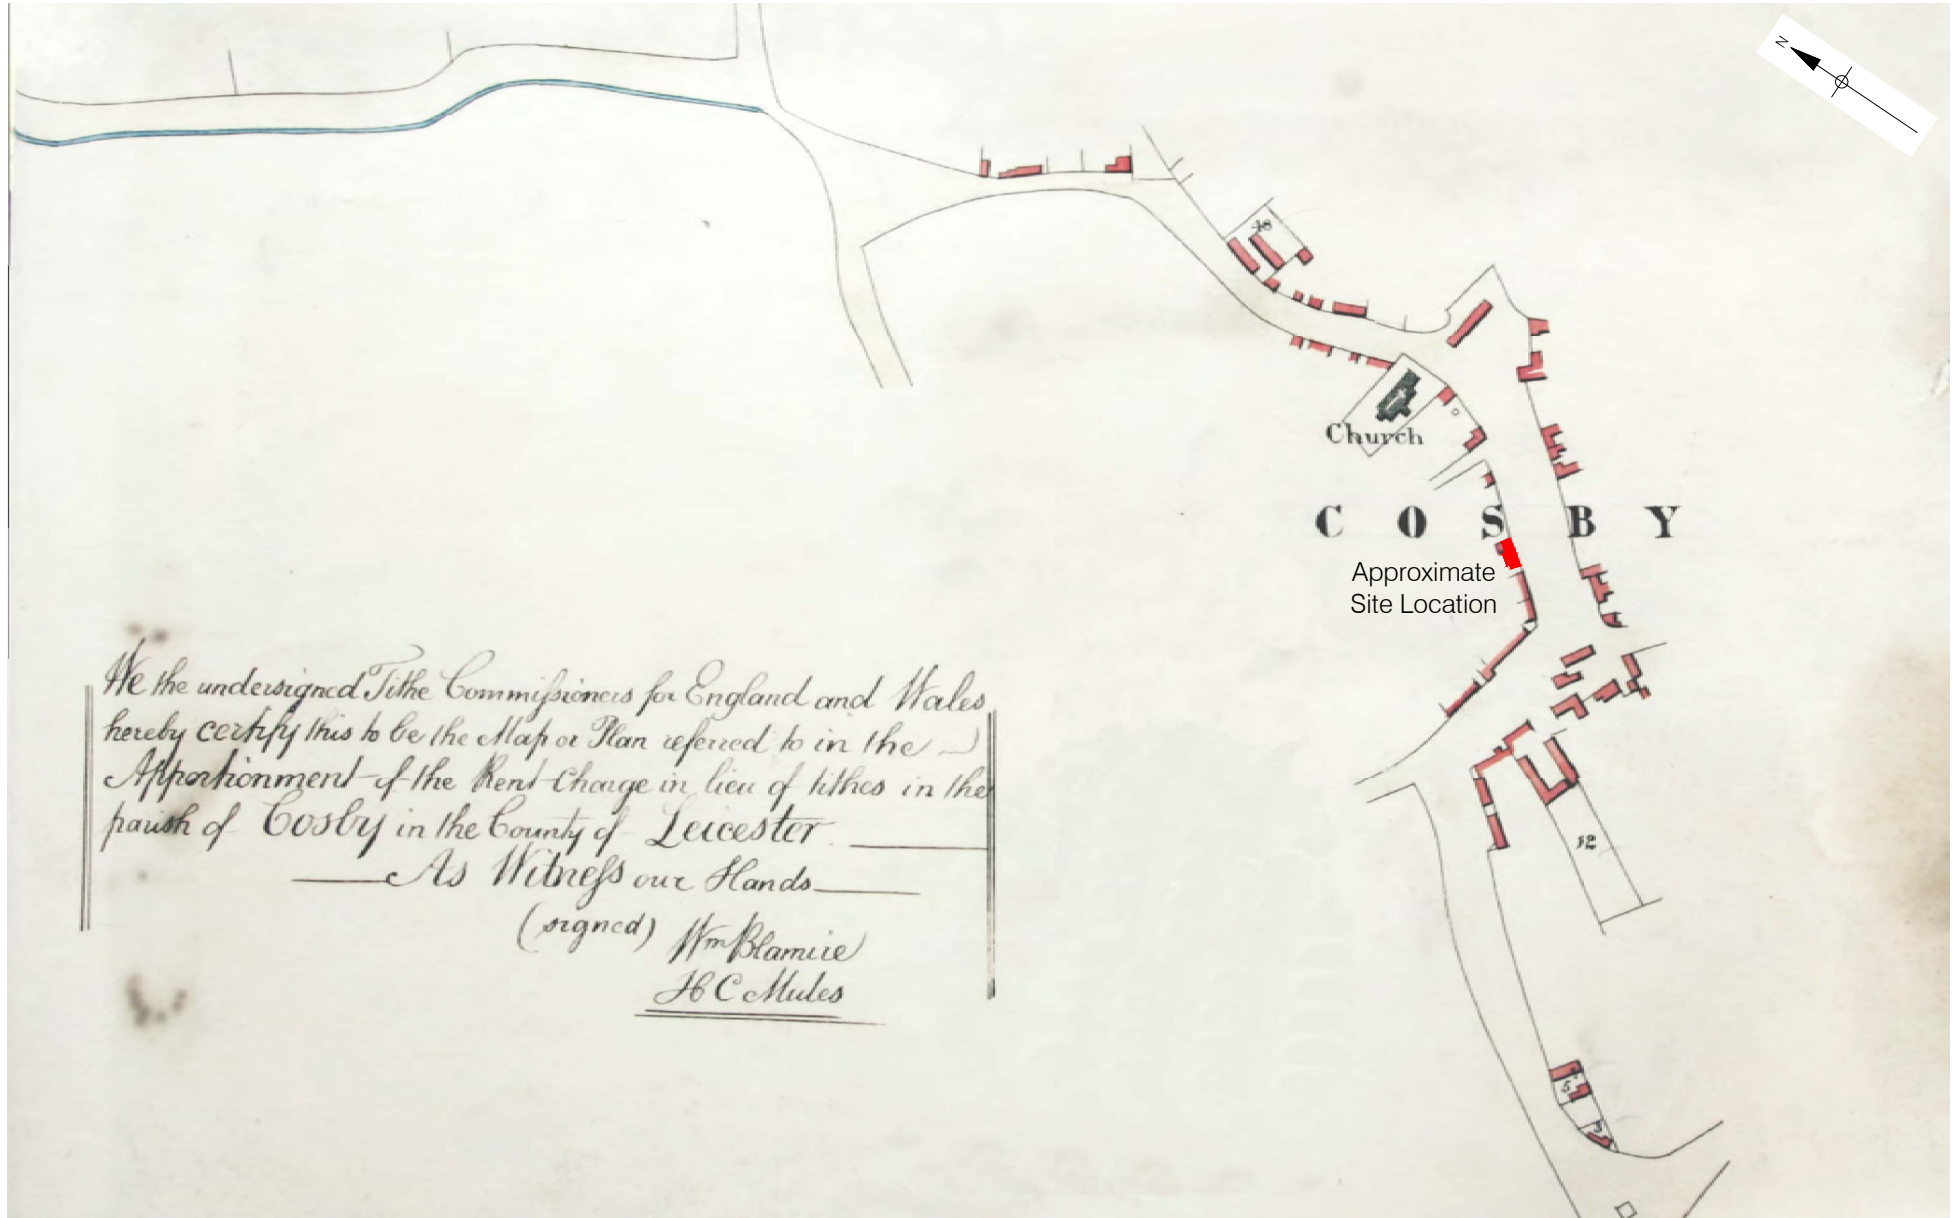 N
18
Church
COSBY
Approximate
Site Location
We the undersigned Tithe Commiſsioners for England and Wales
hereby certify this to be the Map or Plan referred to in the
Apportionment of the Rent Charge in lieu of tithes in the
parish of Cosby in the County of Leicester.
As Witneſs our Hands
(signed) Wm Blamire
H C Mules
12
5
3